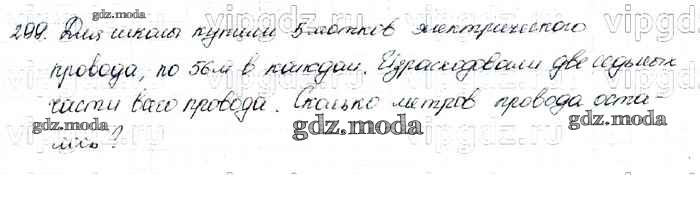 299. Для школы купили 5 мотков электрического
провода, по 56 м в каждом. Израсходовали две седьмых
части всего провода. Сколько метров провода оста-
лось?
gdz.moda
gdz.moda
gdz.moda
gdz.moda
gdz.moda